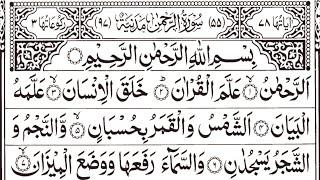 اٰيَاتُهَا ٧٨ (٥٥) سُوْرَةُ الرَّحْمٰنِ مَدَنِيَّةٌ (٩٧) رُكُوْعَاتُهَا ٣
بِسْمِ اللّٰهِ الرَّحْمٰنِ الرَّحِيْمِ
اَلرَّحْمٰنُ ۙ﴿۱﴾ عَلَّمَ الْقُرْاٰنَ ؕ﴿۲﴾ خَلَقَ الْاِنْسَانَ ۙ﴿۳﴾ عَلَّمَهُ
الْبَيَانَ ﴿۴﴾ اَلشَّمْسُ وَالْقَمَرُ بِحُسْبَانٍ ﴿۵﴾ وَّالنَّجْمُ وَ
الشَّجَرُ يَسْجُدٰنِ ﴿۶﴾ وَالسَّمَآءَ رَفَعَهَا وَوَضَعَ الْمِيْزَانَ ۙ﴿۷﴾